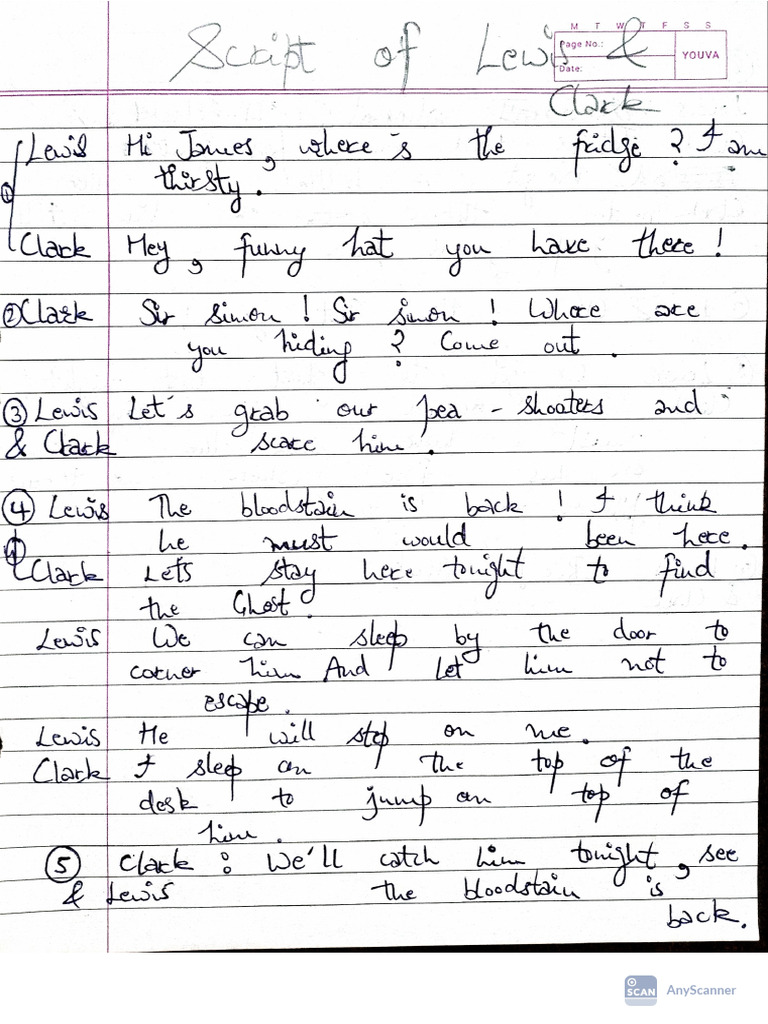 M T W T F S S
Page No.:
Date:
YOUVA
Script of Lewis &
Clark
① Lewis Hi James, where's the fridge? I am
thirsty.
Clark Hey, funny hat you have there!
② Clark Sir simon! Sir simon! Where are
you hiding? Come out.
③ Lewis Let's grab our pea - shooters and
& Clark scare him.
④ Lewis The bloodstain is back! I think
he must would been here.
Clark Lets stay here tonight to find
the Ghost.
Lewis We can sleep by the door to
corner him And let him not to
escape.
Lewis He will step on me.
Clark I sleep on the top of the
desk to jump on top of
him.
⑤ Clark: We'll catch him tonight, see
& Lewis the bloodstain is
back.
SCAN AnyScanner